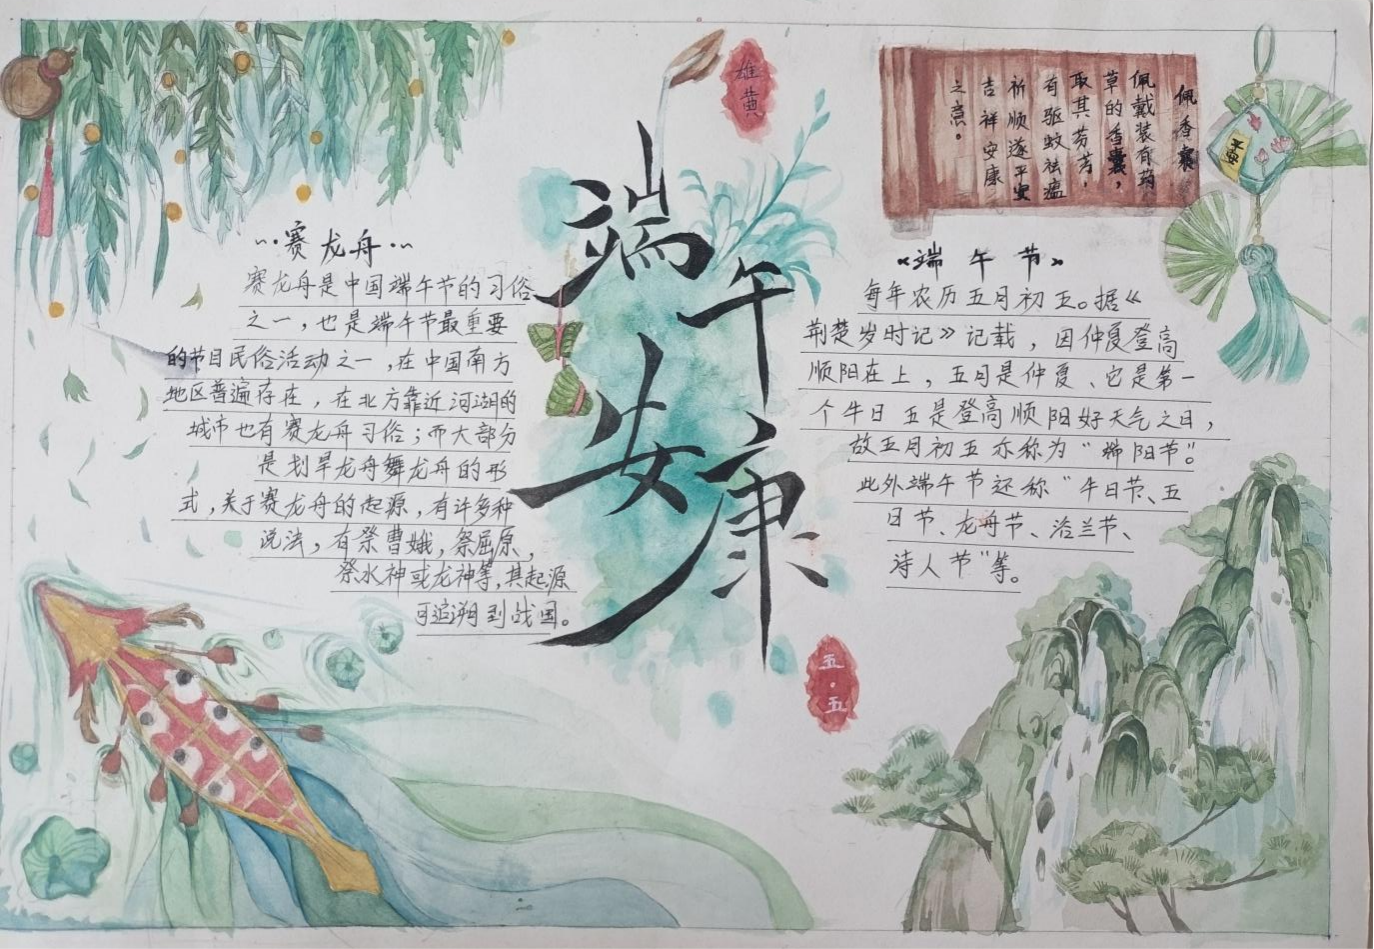 端午安康
雄黄
五·五
佩香囊
佩戴装有药
草的香囊，
取其芬芳，
有驱蚊祛瘟
祈顺遂平安
吉祥安康
之意。
赛龙舟
赛龙舟是中国端午节的习俗
之一，也是端午节最重要
的节目民俗活动之一，在中国南方
地区普遍存在，在北方靠近河湖的
城市也有赛龙舟习俗；而大部分
是划旱龙舟舞龙舟的形
式，关于赛龙舟的起源，有许多种
说法，有祭曹娥，祭屈原，
祭水神或龙神等，其起源
可追溯到战国。
《端午节》
每年农历五月初五。据《
荆楚岁时记》记载，因仲夏登高
顺阳在上，五月是仲夏、它是第一
个午日五是登高顺阳好天气之日，
故五月初五亦称为“端阳节”。
此外端午节还称“午日节、五
日节、龙舟节、浴兰节、
诗人节”等。